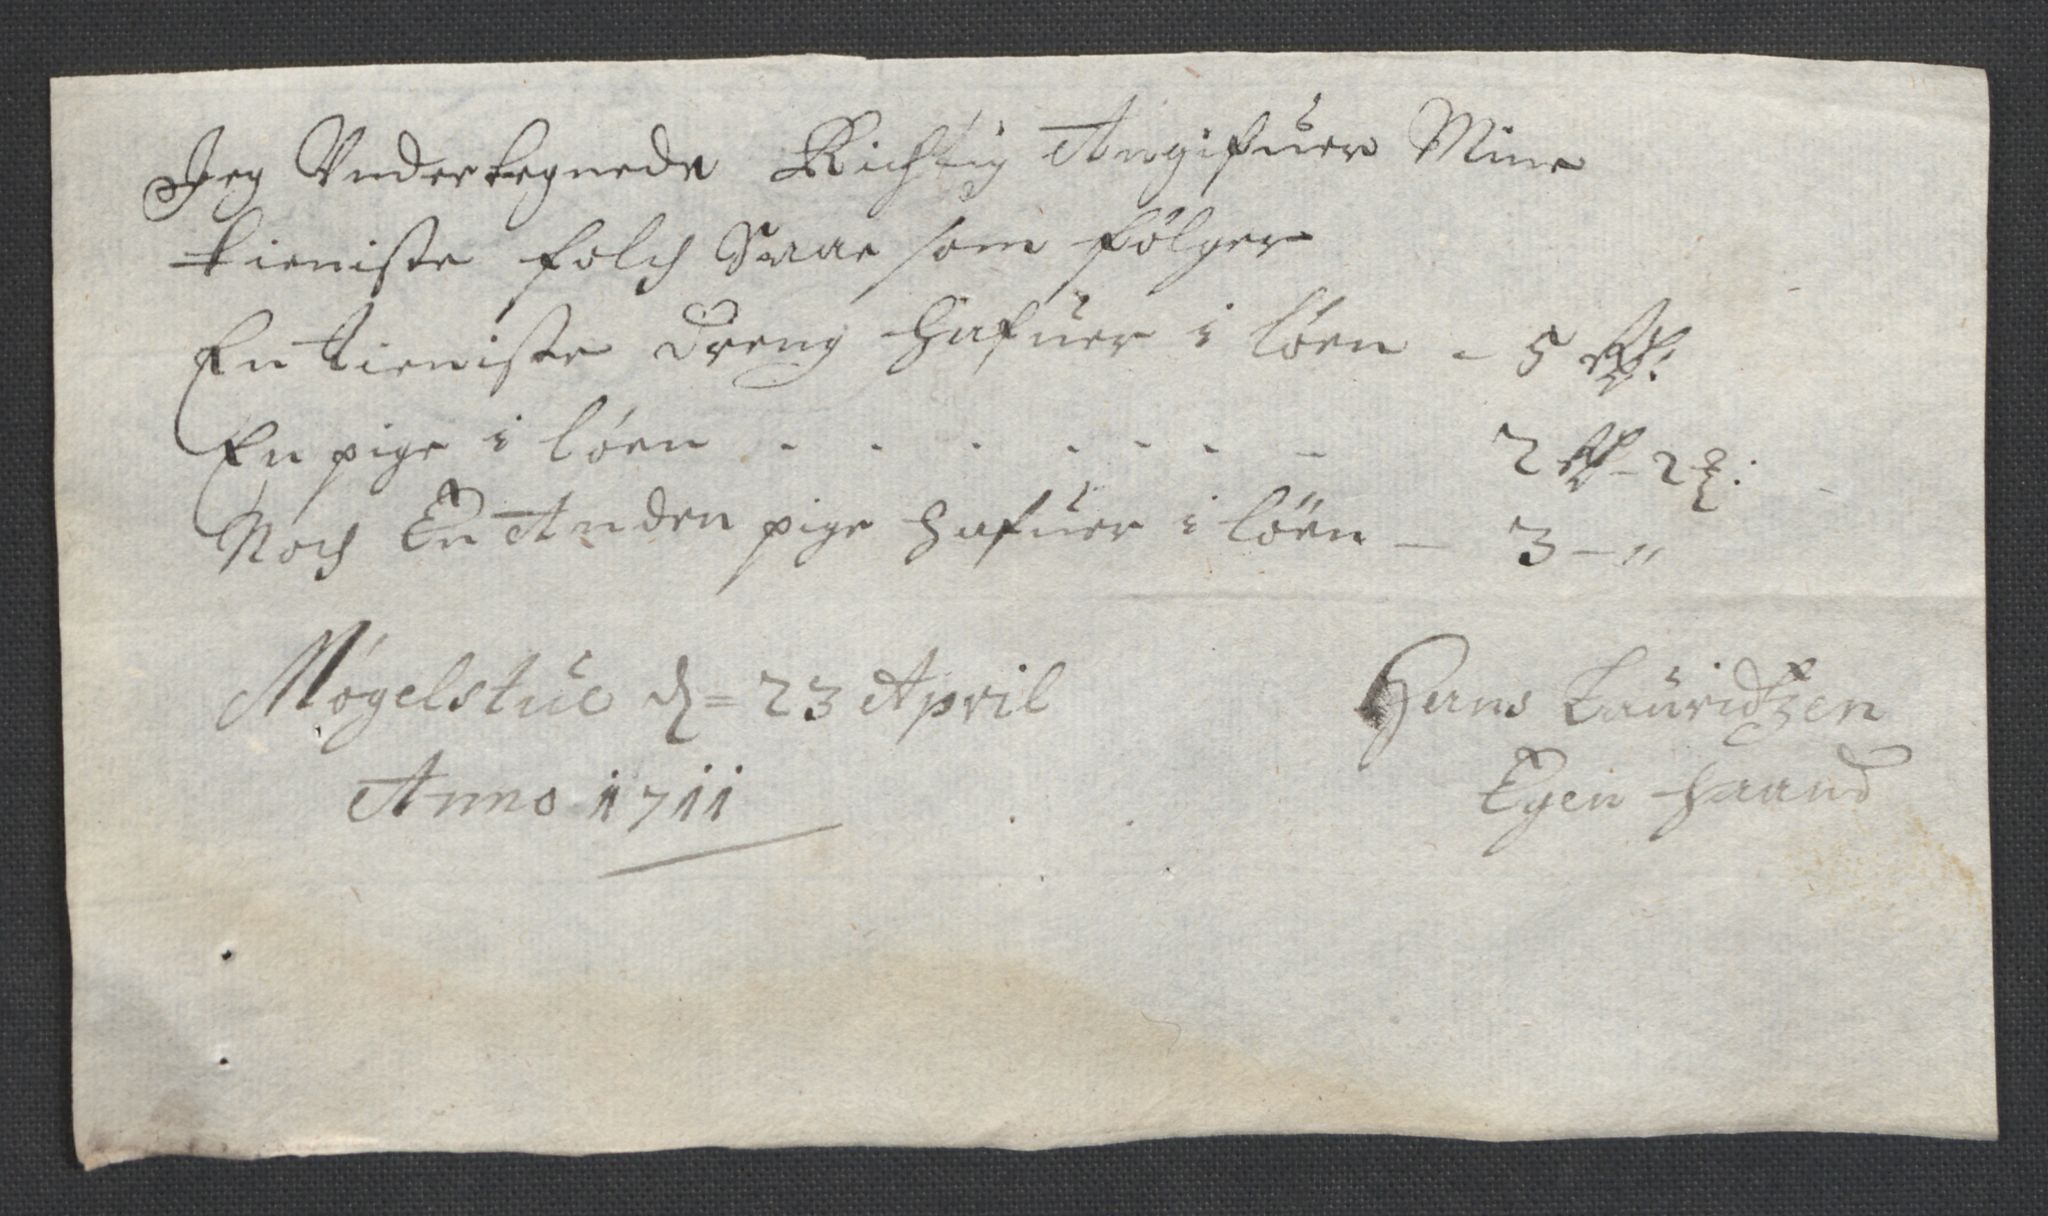 Jeg Vndertegnede Richtig Angifuer Mine
tieniste folch Saae som følger
En tieniste dreng hafuer i löen - 5 Rd:
En pige i löen . . . . . . - 2 Rd - 2 ß:
Noch En Anden pige hafuer i löen - 3 - "
Mogelstue d = 23 April
Anno 1711
Hans Lauridtzen
Egen haand